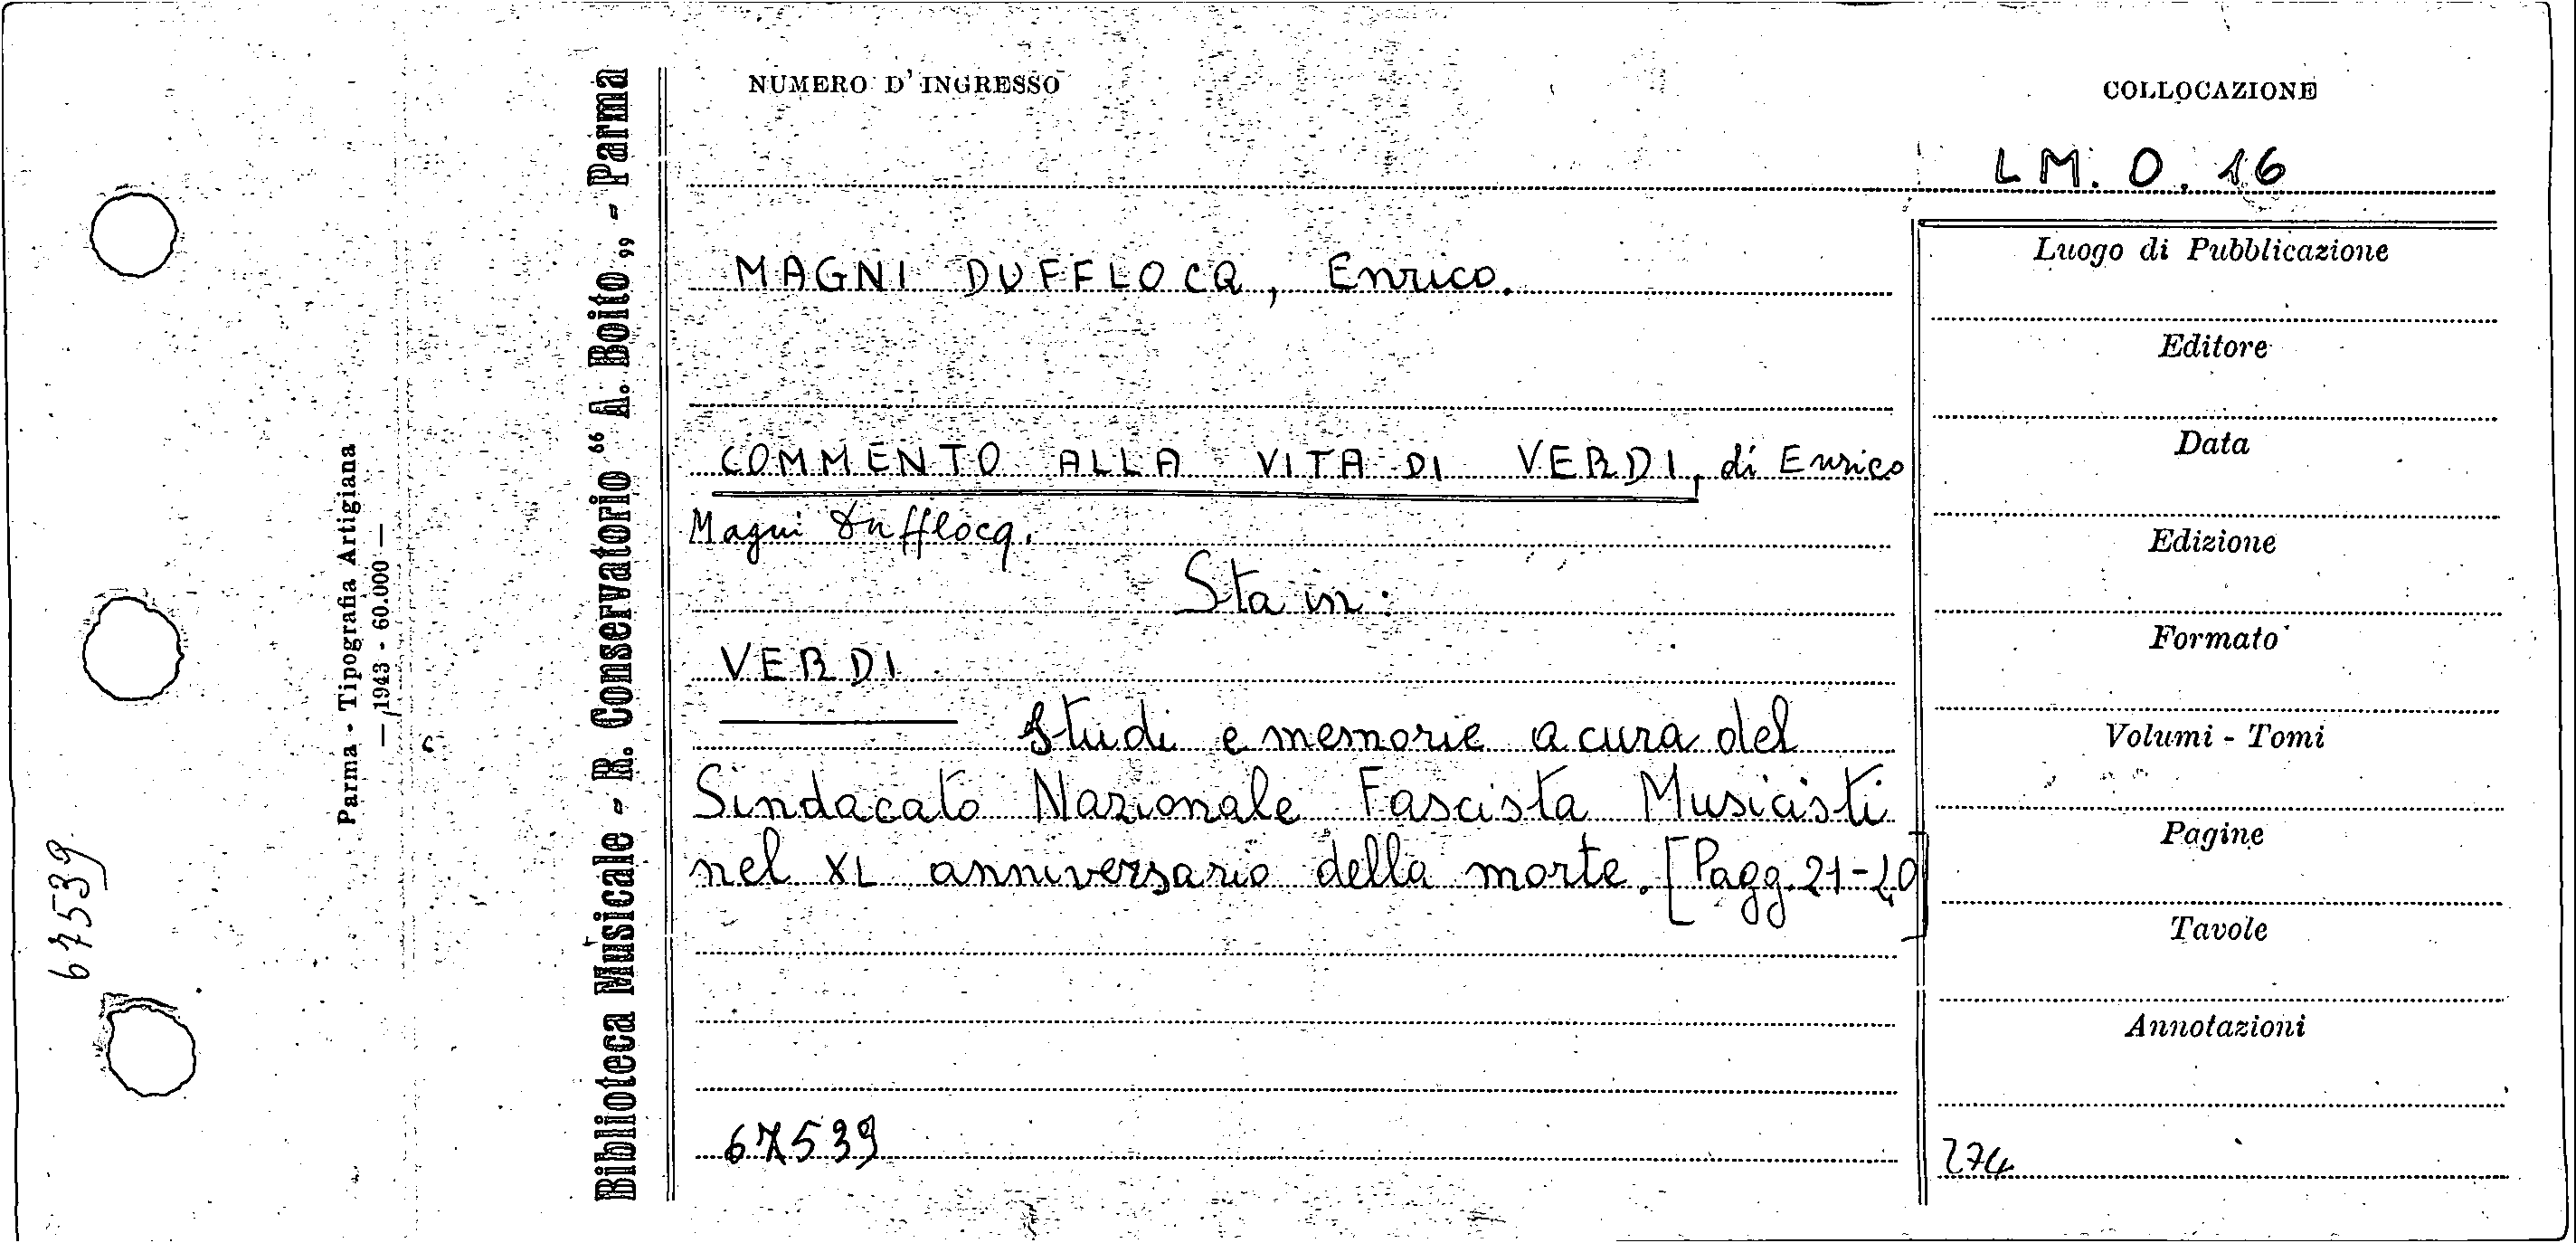 NUMERO D'INGRESSO
COLLOCAZIONE
LM. O. 16
MAGNI DUFFLOCQ, Enrico.
COMMENTO ALLA VITA DI VERDI, di Enrico
Magni Dufflocq.
Sta in:
VERDI
Studi e memorie a cura del
Sindacato Nazionale Fascista Musicisti
nel XL anniversario della morte. [Pagg. 21-40]
67539
Luogo di Pubblicazione
Editore
Data
Edizione
Formato
Volumi - Tomi
Pagine
Tavole
Annotazioni
274
Biblioteca Musicale - R. Conservatorio “ A. Boito „ - Parma
Parma - Tipografia Artigiana
— 1943 - 60.000 —
67539